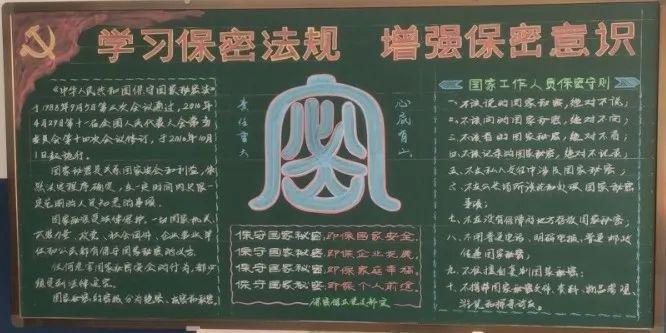 学习保密法规 增强保密意识
《中华人民共和国保守国家秘密法》
于1988年9月5日第三次会议通过，2010年
4月29日第十一届全国人民代表大会常务
委员会第十四次会议修订，于2010年10月
1日起施行。
国家秘密是关系国家安全和利益，依
照法定程序确定，在一定时间内只限一
定范围的人员知悉的事项。
国家秘密受法律保护。一切国家机关、
武装力量、政党、社会团体、企业事业单
位和公民都有保守国家秘密的义务。
任何危害国家秘密安全的行为，都必
须受到法律追究。
国家秘密的密级分为绝密、机密和秘密。
责任重大
心底有山
保守国家秘密，即保国家安全。
保守国家秘密，即保企业发展。
保守国家秘密，即保家庭幸福。
保守国家秘密，即保个人前途。
国家工作人员保密守则
一、不该说的国家秘密，绝对不说；
二、不该问的国家秘密，绝对不问；
三、不该看的国家秘密，绝对不看；
四、不该记录的国家秘密，绝对不记录；
五、不在私人交往中涉及国家秘密；
六、不在公共场所谈论和处理国家秘密
事项；
七、不在没有保障的地方存放国家秘密；
八、不用普通电话、明码电报、普通邮政
九、不准擅自复制国家秘密；
十、不携带国家秘密文件、资料、物品
游览和探亲访友。